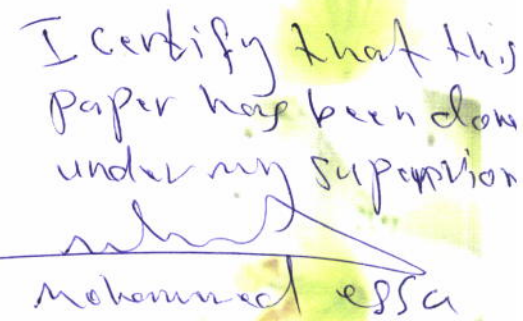 I certify that this
paper has been done
under my supervision
Mohammed essa